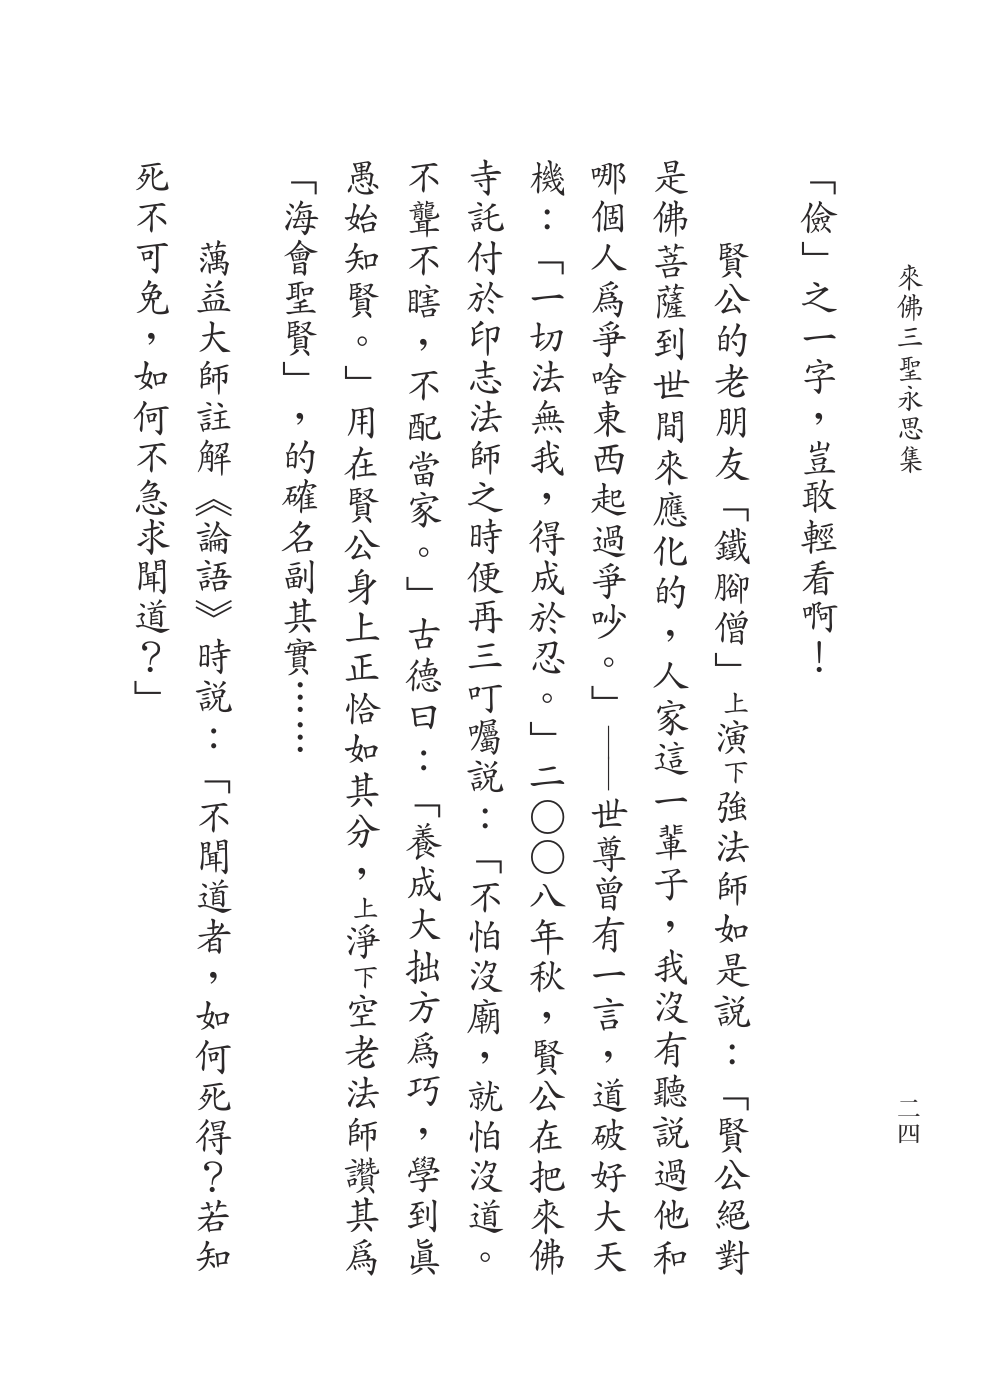 來佛三聖永思集
二四
「儉」之一字，豈敢輕看啊！
賢公的老朋友「鐵腳僧」上演下強法師如是説：「賢公絕對
是佛菩薩到世間來應化的，人家這一輩子，我沒有聽説過他和
哪個人爲爭啥東西起過爭吵。」——世尊曾有一言，道破好大天
機：「一切法無我，得成於忍。」二〇〇八年秋，賢公在把來佛
寺託付於印志法師之時便再三叮囑説：「不怕沒廟，就怕沒道。
不聾不瞎，不配當家。」古德曰：「養成大拙方爲巧，學到眞
愚始知賢。」用在賢公身上正恰如其分，上淨下空老法師讚其爲
「海會聖賢」，的確名副其實……
蕅益大師註解《論語》時説：「不聞道者，如何死得？若知
死不可免，如何不急求聞道？」